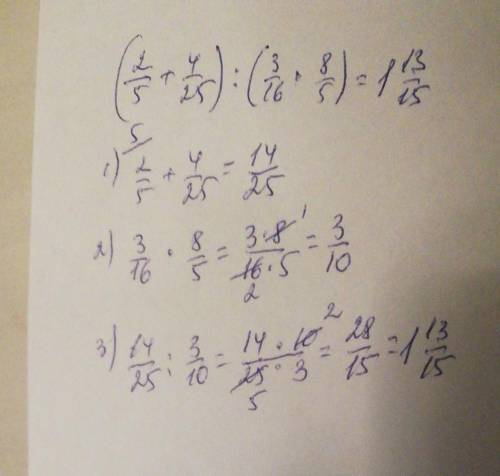 (2/5 + 4/25) : (3/16 · 8/5) = 1 13/15
1) 5/ 2/5 + 4/25 = 14/25
2) 3/16 · 8/5 = 3·8 1/16·5 2 = 3/10
3) 14/25 : 3/10 = 14·10 2/25·3 5 = 28/15 = 1 13/15